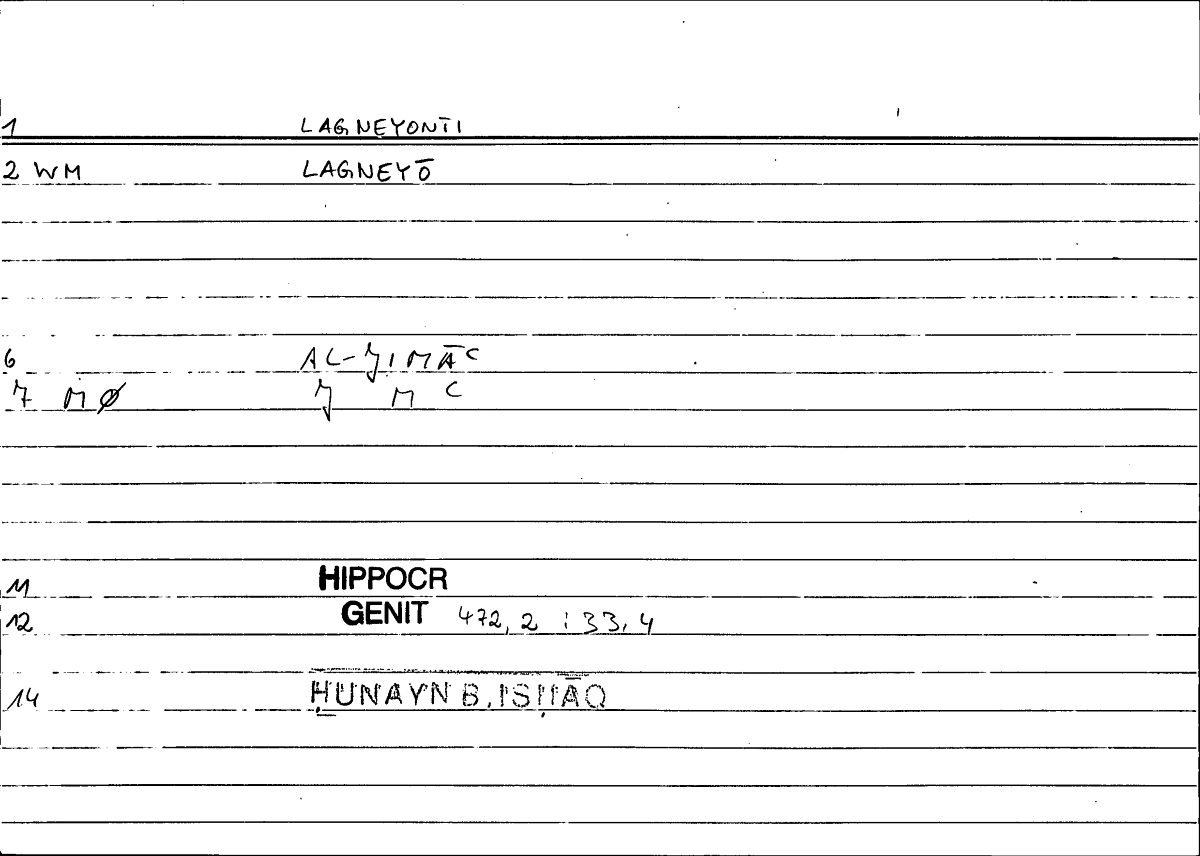 1 LAGNEYONTI
2 WM LAGNEYŌ
6 AL-ǦIMĀʿ
7 MØ Ǧ M ʿ
11 HIPPOCR
12 GENIT 472,2 : 33,4
14 ḤUNAYN B. ISḤĀQ